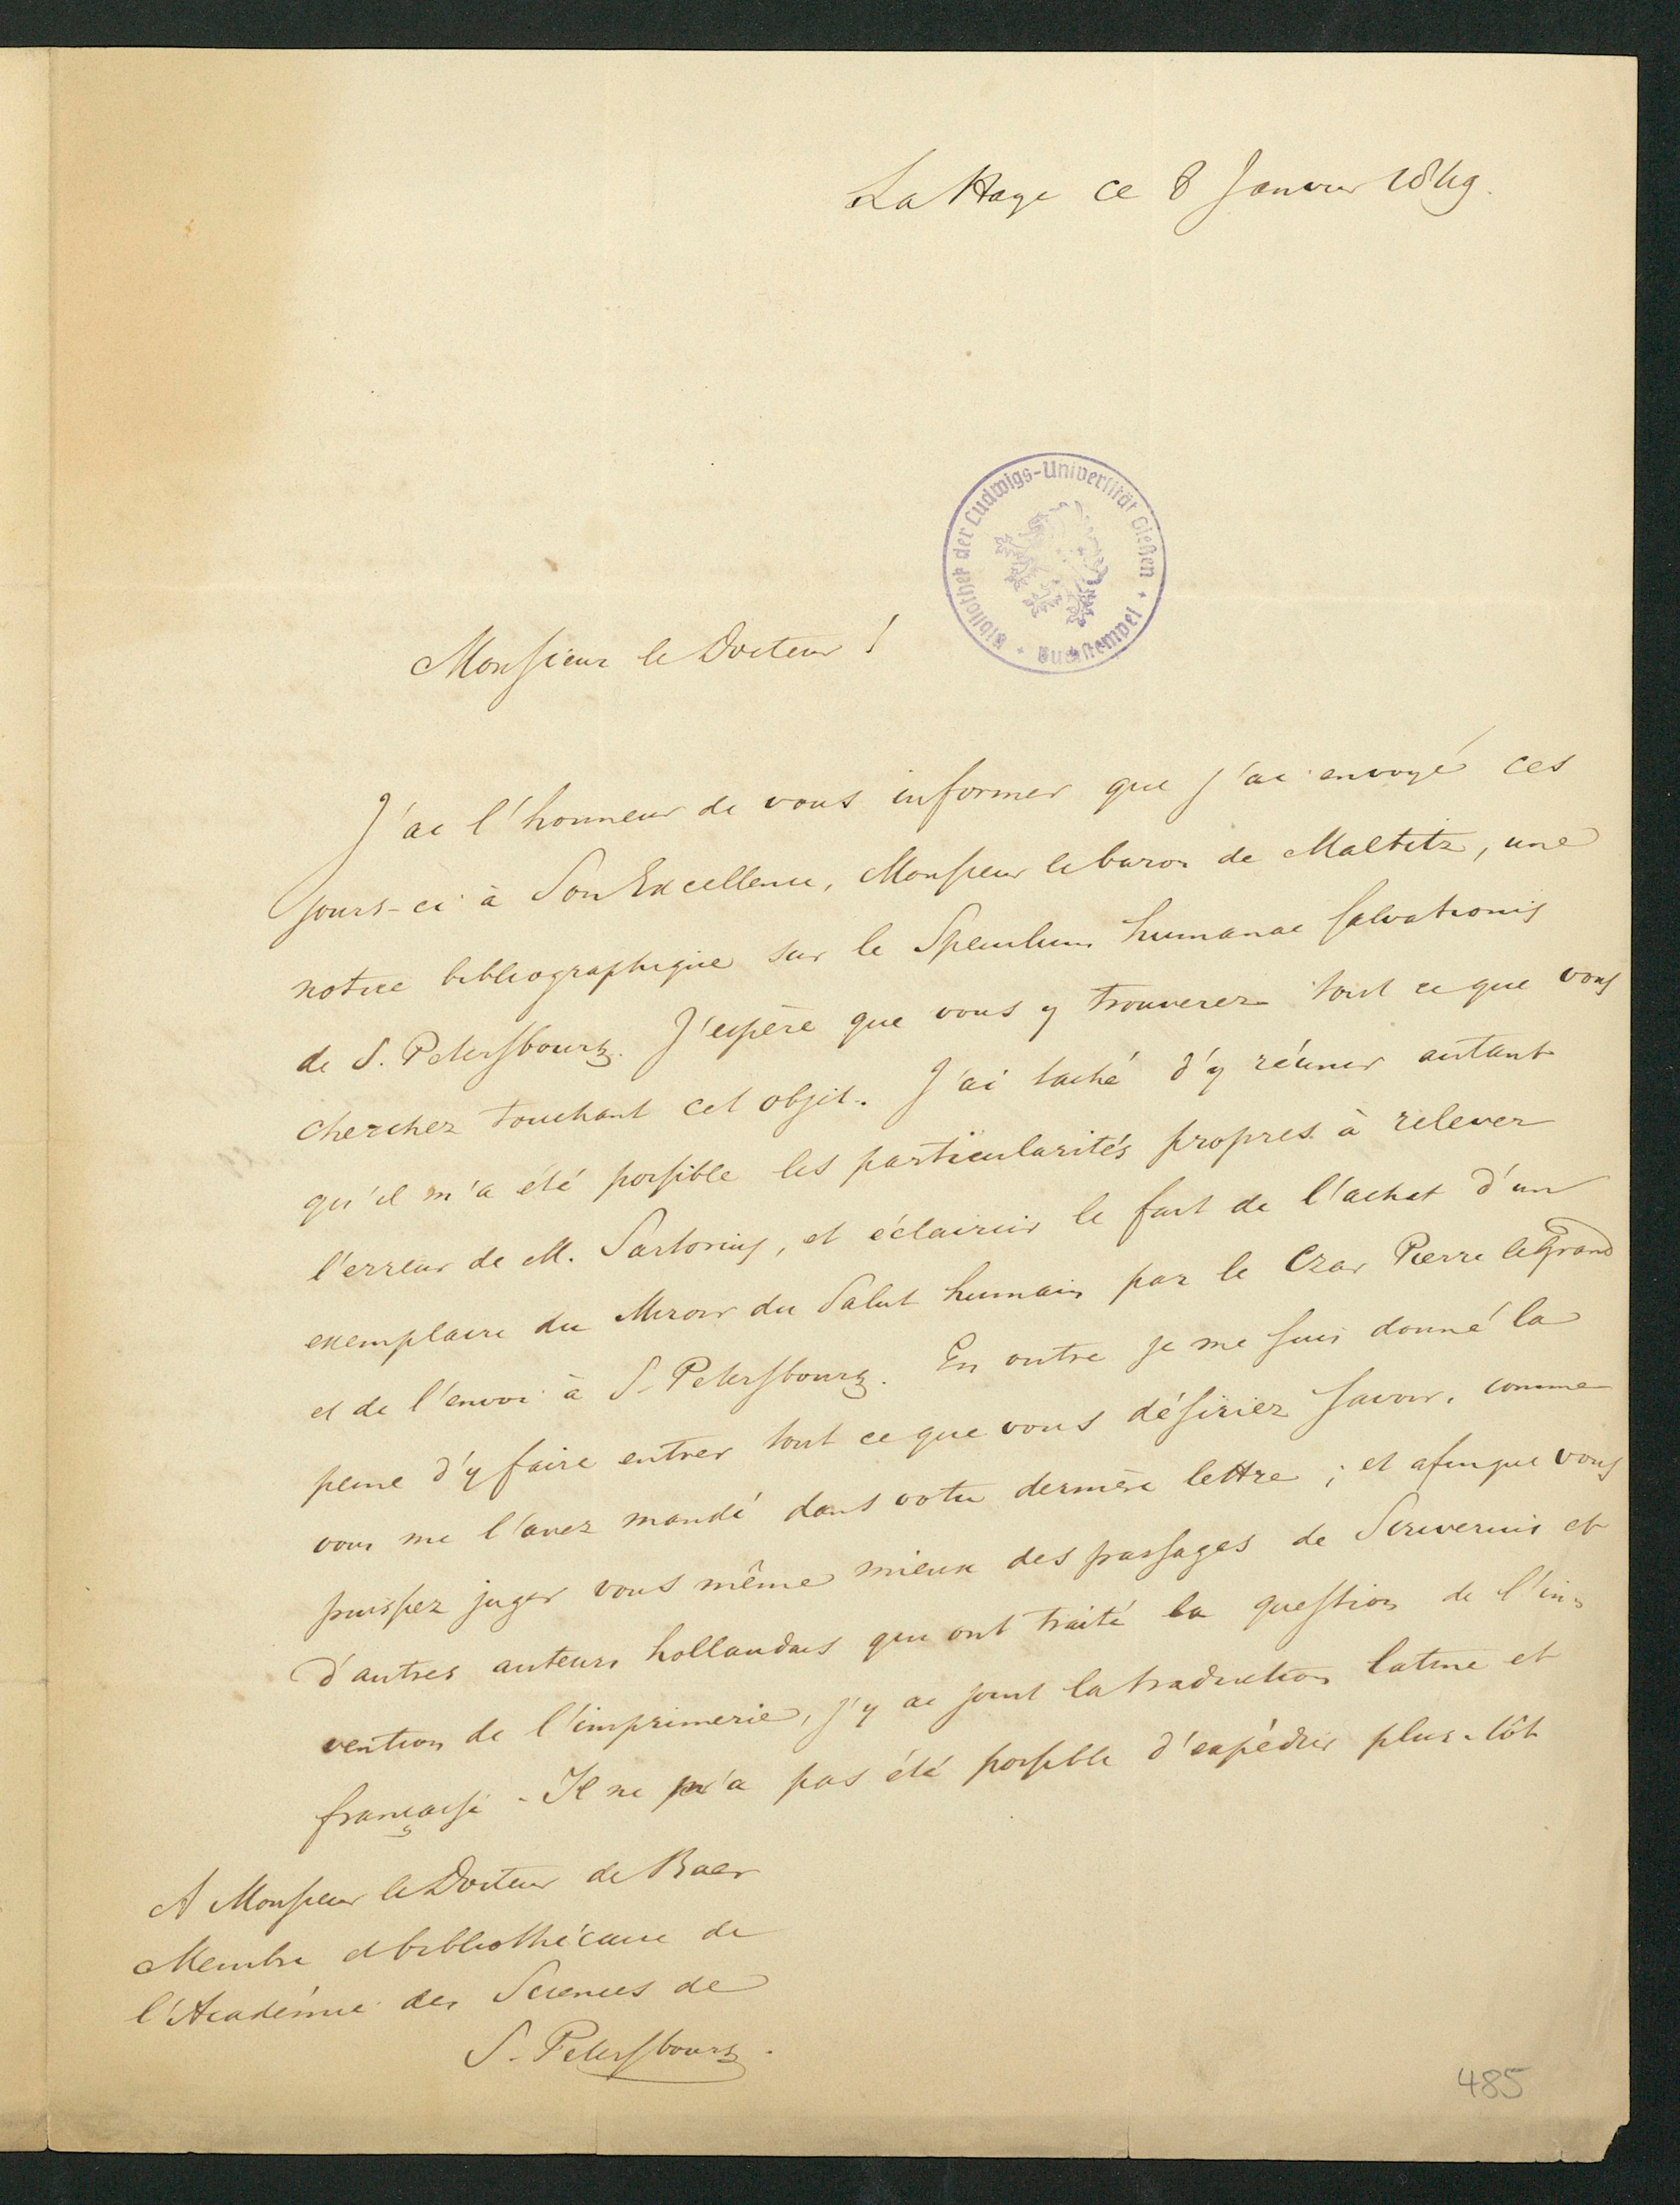 La Haye ce 8 Janvier 1849.
Bibliothek der Ludwigs-Universität Gießen + Buchstempel +
Monsieur le Docteur !
J'ai l'honneur de vous informer que j'ai envoyé ces
jours-ci à Son Excellence, Monsieur le baron de Maltitz, une
notice bibliographique sur le Speculum humanae salvationis
de S. Petersbourg. J'espère que vous y trouverez tout ce que vous
cherchez touchant cet objet. J'ai taché d'y réunir autant
qu'il m'a été possible les particularités propres à relever
l'erreur de M. Sartorius, et éclaircir le fait de l'achat d'un
exemplaire du Miroir du Salut humain par le Czar Pierre le Grand
et de l'envoi à S. Petersbourg. En outre je me suis donné la
peine d'y faire entrer tout ce que vous désiriez savoir, comme
vous me l'avez mandé dans votre dernière lettre ; et afin que vous
puissez juger vous même mieux des passages de Scriverius et
d'autres auteurs hollandais qui ont traité la question de l'in-
vention de l'imprimerie, j'y ai joint la traduction latine et
française. Il ne m'a pas été possible d'expédier plus-tôt
A Monsieur le Docteur de Baer
Membre et bibliothécaire de
l'Académie des Sciences de
S. Petersbourg.
485